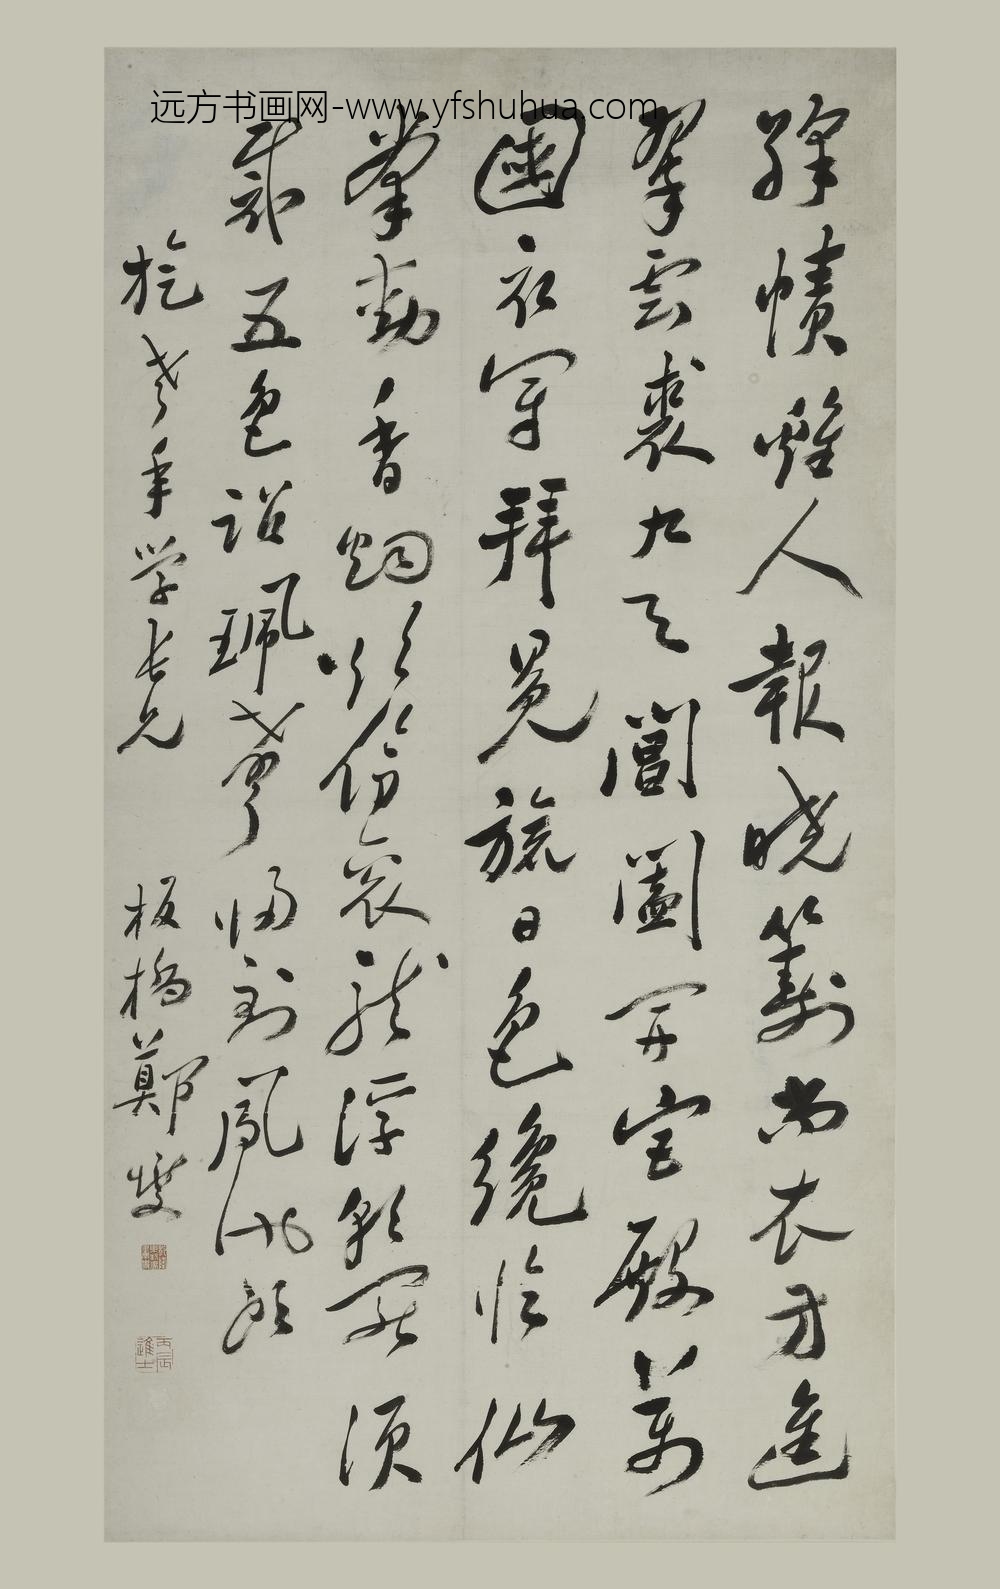 远方书画网-www.yfshuhua.com
絳幘雞人報曉籌尚衣方進
翠雲裘九天閶闔開宮殿萬
國衣冠拜冕旒日色纔臨仙
掌動香烟欲傍袞龍浮朝罷須
裁五色詔珮聲歸到鳳池頭
老年学長兄
板橋鄭燮
丙辰進士